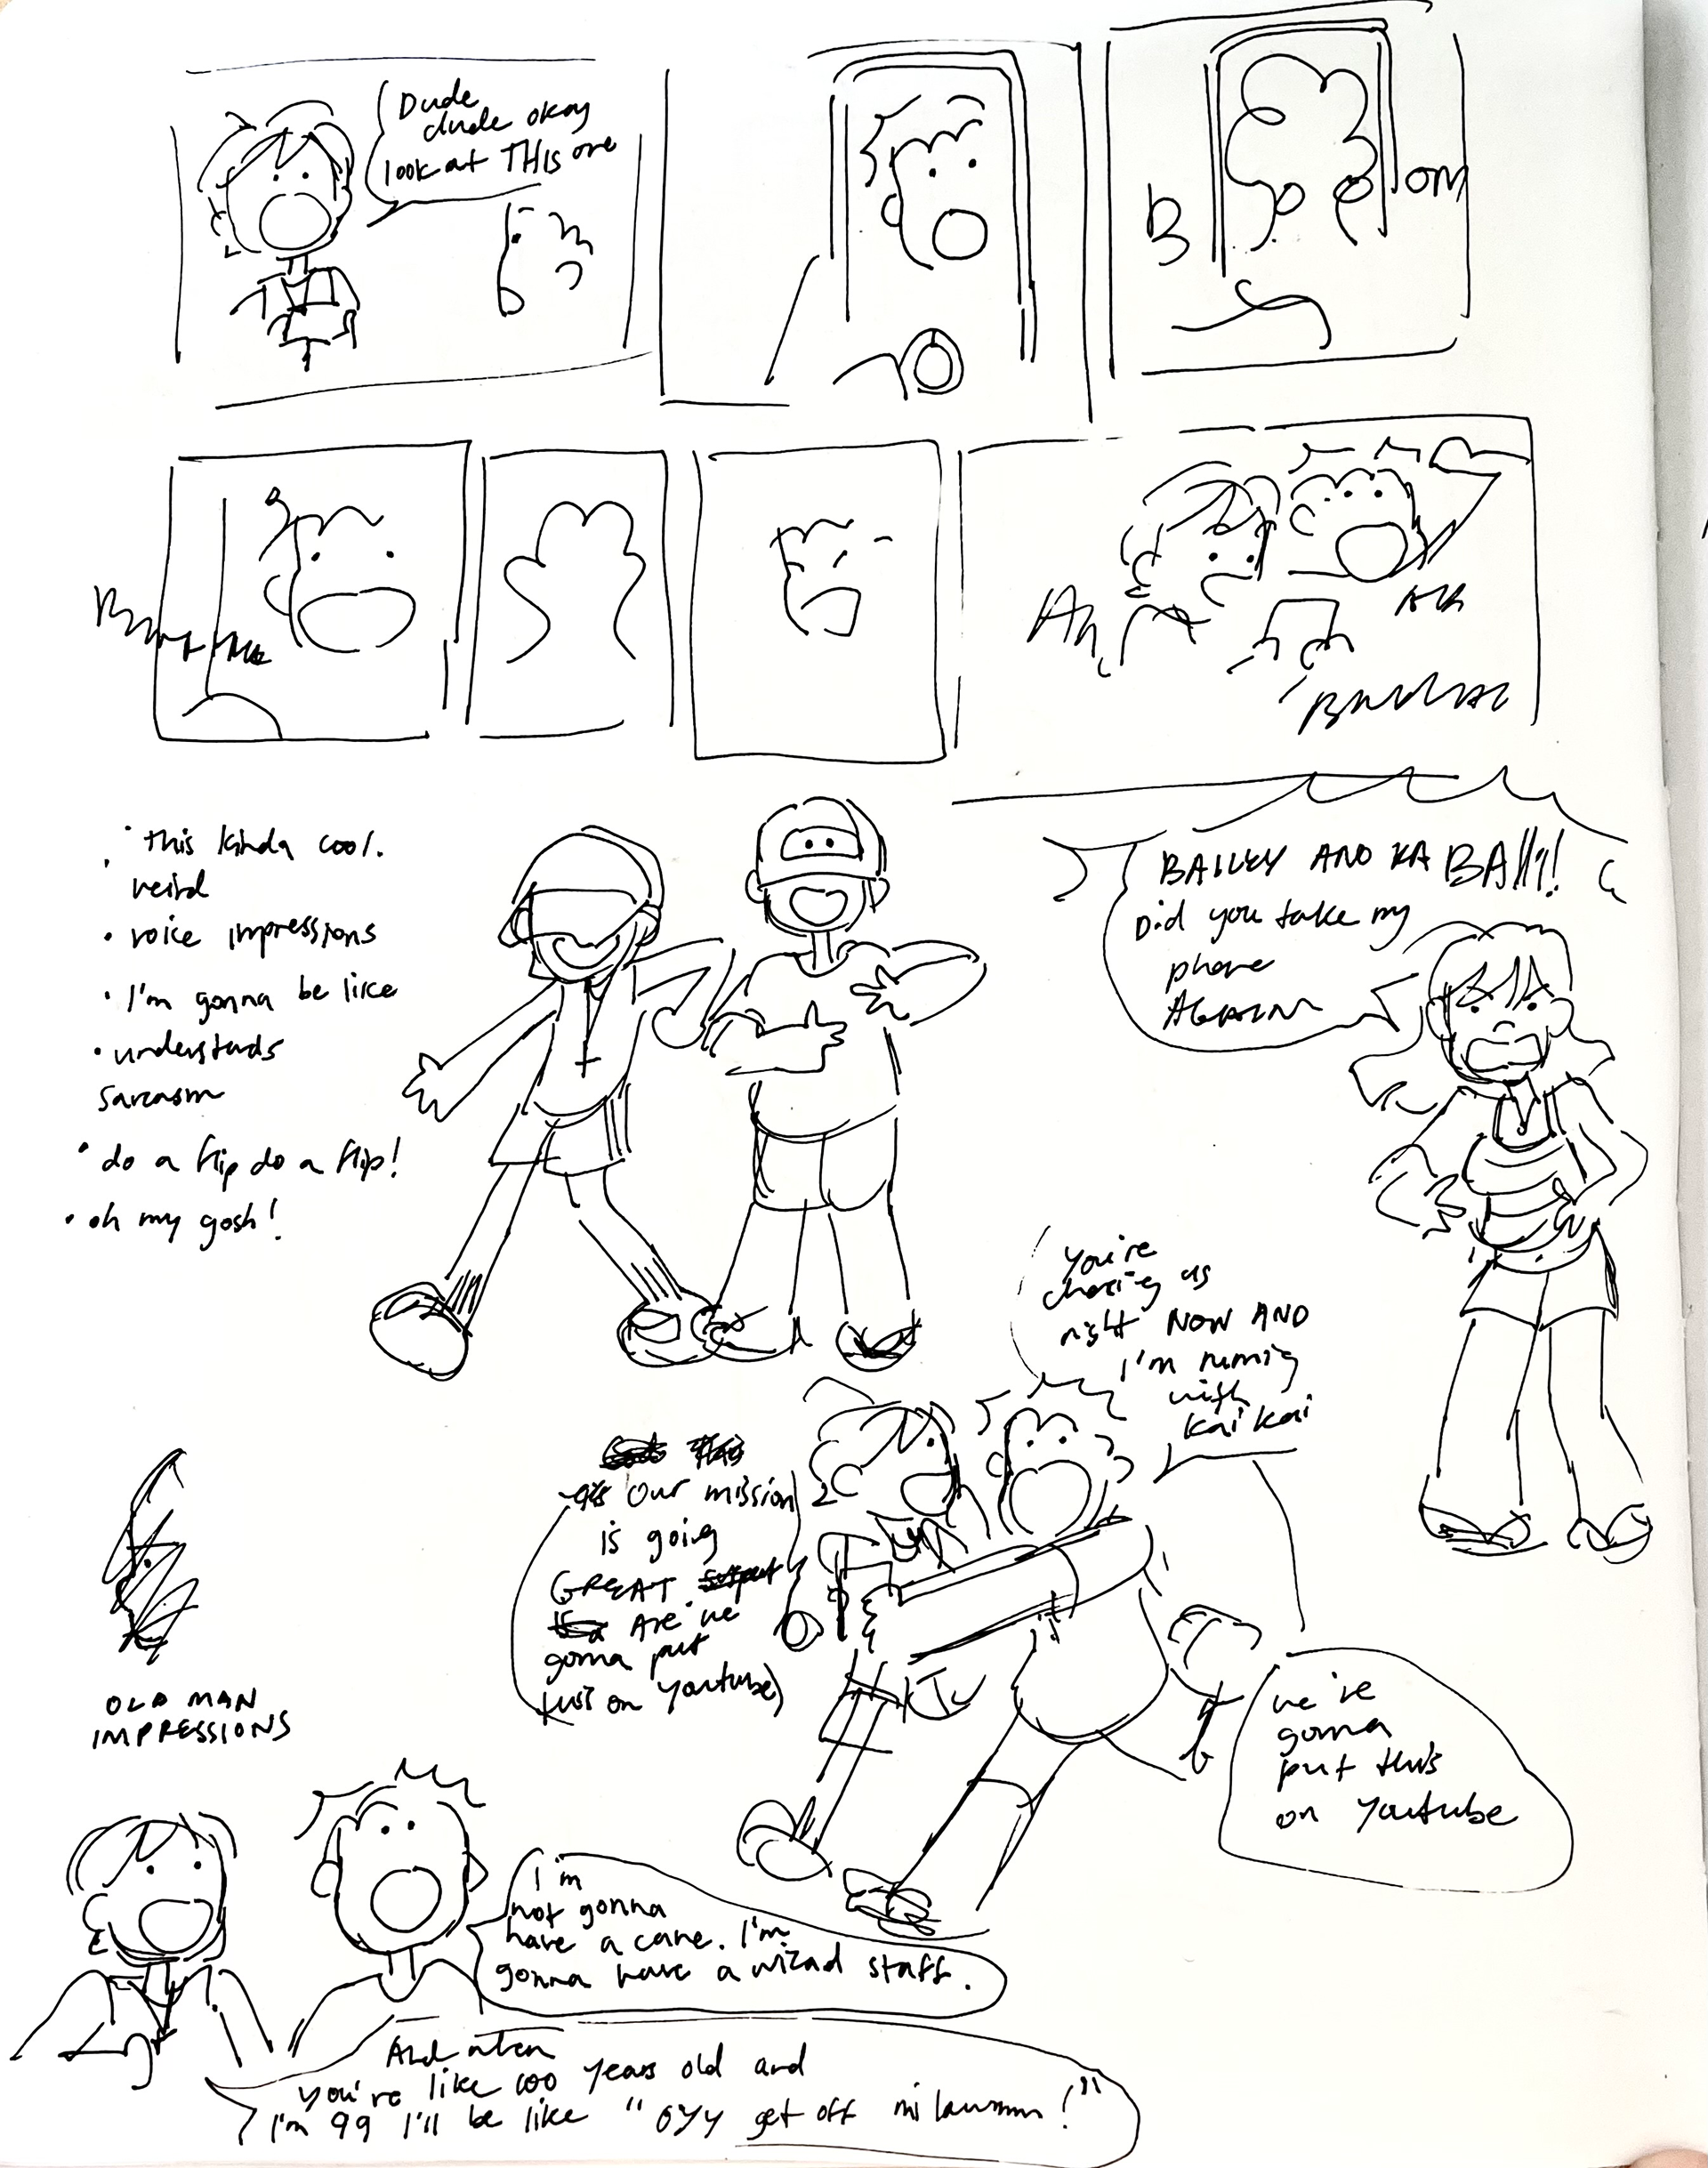 Dude
dude okay
look at THIS one
B OOM
Ah
BAILEY AND KA BAII!!
Did you take my
phone
AGAIN
this kinda cool.
weird
• voice impressions
• I'm gonna be like
• understands
sarcasm
• do a flip do a flip!
• oh my gosh!
You're
chasing us
right NOW AND
I'm running
with
kai kai
Our mission
is going
GREAT
Are we
gonna put
this on youtube)
we're
gonna
put this
on Youtube
OLD MAN
IMPRESSIONS
I'm
not gonna
have a cane. I'm
gonna have a wizad staff.
And when
you're like 100 years old and
I'm 99 I'll be like "oyy get off mi lawnnn!"